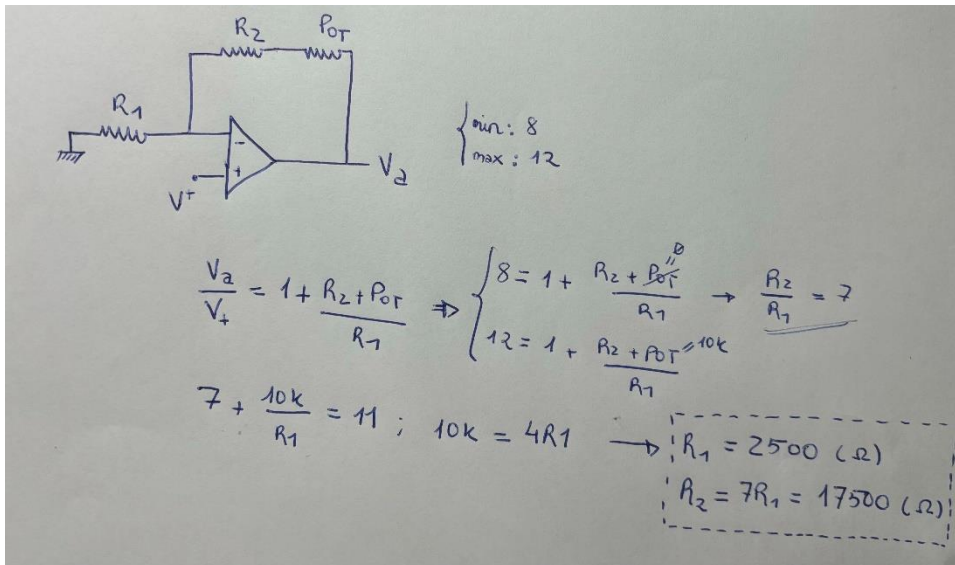 R2 POT
R1
-
+
V+
Va
{ min: 8
max: 12
Va/V+ = 1 + (R2 + POT)/R1 ⇒ { 8 = 1 + (R2 + POT = 0)/R1 → R2/R1 = 7
12 = 1 + (R2 + POT = 10k)/R1
7 + 10k/R1 = 11 ; 10k = 4R1 → R1 = 2500 (Ω)
R2 = 7R1 = 17500 (Ω)